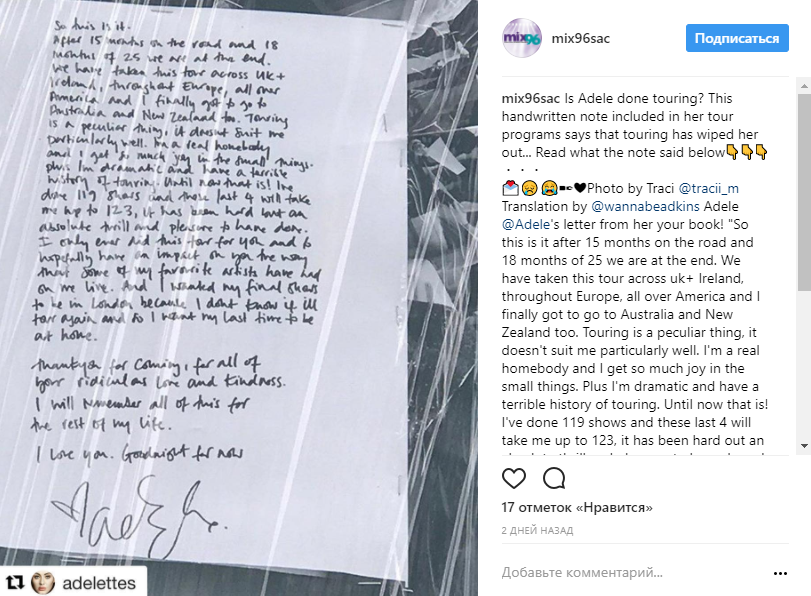 So this is it.
After 15 months on the road and 18
months of 25 we are at the end.
We have taken this tour across UK+
Ireland, throughout Europe, all over
America and I finally got to go to
Australia and New Zealand too. Touring
is a peculiar thing, it doesnt suit me
particularly well. Im a real homebody
and I get so much joy in the small things.
Plus I'm dramatic and have a terrible
history of touring. Until now that is! I've
done 119 shows and these last 4 will take
me up to 123, it has been hard but an
absolute thrill and pleasure to have done.
I only ever did this tour for you and to
hopefully have an impact on you the way
that some of my favourite artists have had
on me live. And I wanted my final shows
to be in London because I dont know if ill
tour again and so I want my last time to be
at home.
Thankyou for coming, for all of
your ridiculous love and kindness.
I will remember all of this for
the rest of my life.
I love you. Goodnight for now
adelettes
mix96
mix96sac
Подписаться
mix96sac Is Adele done touring? This
handwritten note included in her tour
programs says that touring has wiped her
out... Read what the note said below👇👇👇
. . .
💌😢😭✒🖤Photo by Traci @tracii_m
Translation by @wannabeadkins Adele
@Adele's letter from her your book! "So
this is it after 15 months on the road and
18 months of 25 we are at the end. We
have taken this tour across uk+ Ireland,
throughout Europe, all over America and I
finally got to go to Australia and New
Zealand too. Touring is a peculiar thing, it
doesn't suit me particularly well. I'm a real
homebody and I get so much joy in the
small things. Plus I'm dramatic and have a
terrible history of touring. Until now that is!
I've done 119 shows and these last 4 will
take me up to 123, it has been hard out an
17 отметок «Нравится»
2 ДНЕЙ НАЗАД
Добавьте комментарий...